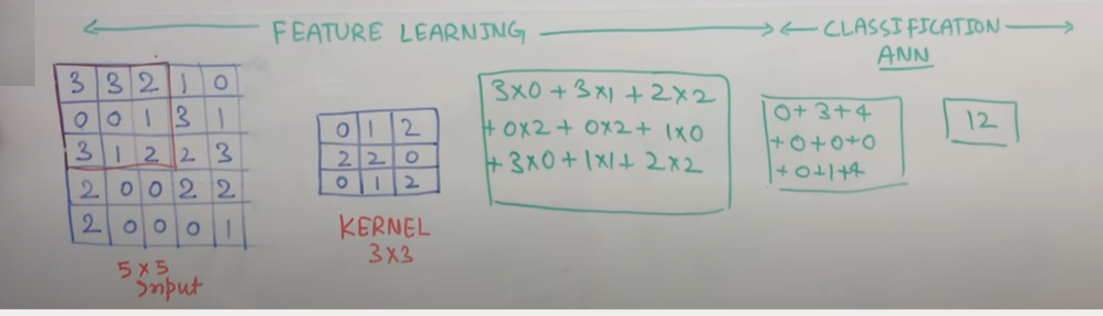 FEATURE LEARNING
CLASSIFICATION
ANN
3 3 2 1 0
0 0 1 3 1
3 1 2 2 3
2 0 0 2 2
2 0 0 0 1
5x5
Input
0 1 2
2 2 0
0 1 2
KERNEL
3x3
3x0 + 3x1 + 2x2
+ 0x2 + 0x2 + 1x0
+ 3x0 + 1x1 + 2x2
0 + 3 + 4
+ 0 + 0 + 0
+ 0 + 1 + 4
12